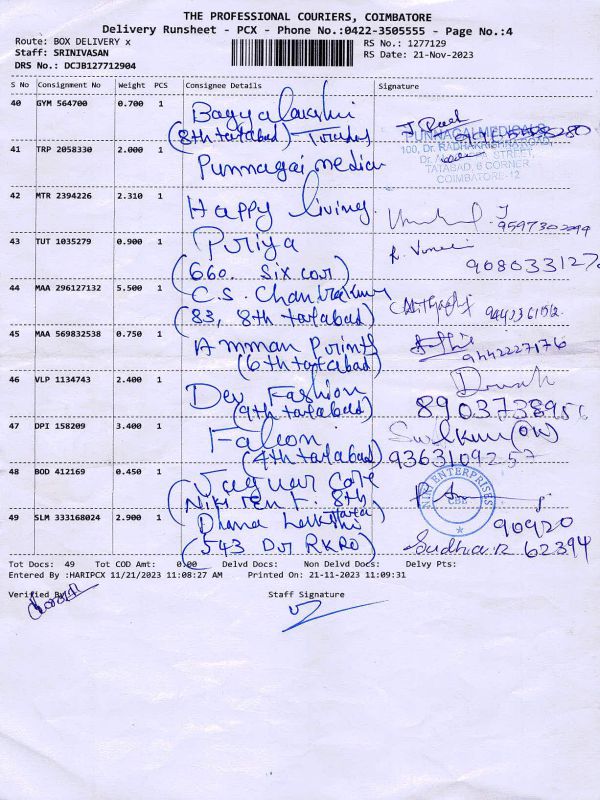 THE PROFESSIONAL COURIERS, COIMBATORE
Delivery Runsheet - PCX - Phone No.:0422-3505555 - Page No.:4
Route: BOX DELIVERY x
RS No.: 1277129
Staff: SRINIVASAN
RS Date: 21-Nov-2023
DRS No.: DCJB127712904
S No Consignment No Weight PCS Consignee Details Signature
40 GYM 564700 0.700 1 Bagyalakshmi
(8th tatabad) Traders
PUNNAGAI MEDICALS
100, Dr. RADHAKRISHNAN ROAD,
STREET,
TATABAD, 6 CORNER
COIMBATORE-12
41 TRP 2058330 2.000 1 Punnagai medica
42 MTR 2394226 2.310 1 Happy living
9597302099
43 TUT 1035279 0.900 1 Priya
(660. Six cour)
908033127
44 MAA 296127132 5.500 1 C.S. Chandrakumar
(83, 8th tatabad)
45 MAA 569832538 0.750 1 Amman Prints
(6th tatabad)
9442227176
46 VLP 1134743 2.400 1 Dev Fashion
(9th tatabad)
8903738956
47 DPI 158209 3.400 1 Falcon
(4th tatabad)
9363109257
48 BOD 412169 0.450 1 Jaguar Care
(Niki Ten t. 8th
NIKI ENTERPRISES
CBE
49 SLM 333168024 2.900 1 Dhana Lakshmi
(543 Dr RKRD)
90920
Sudha.R 62394
Tot Docs: 49 Tot COD Amt: 0.00 Delvd Docs: Non Delvd Docs: Delvy Pts:
Entered By :HARIPCX 11/21/2023 11:08:27 AM Printed On: 21-11-2023 11:09:31
Verified By
Staff Signature